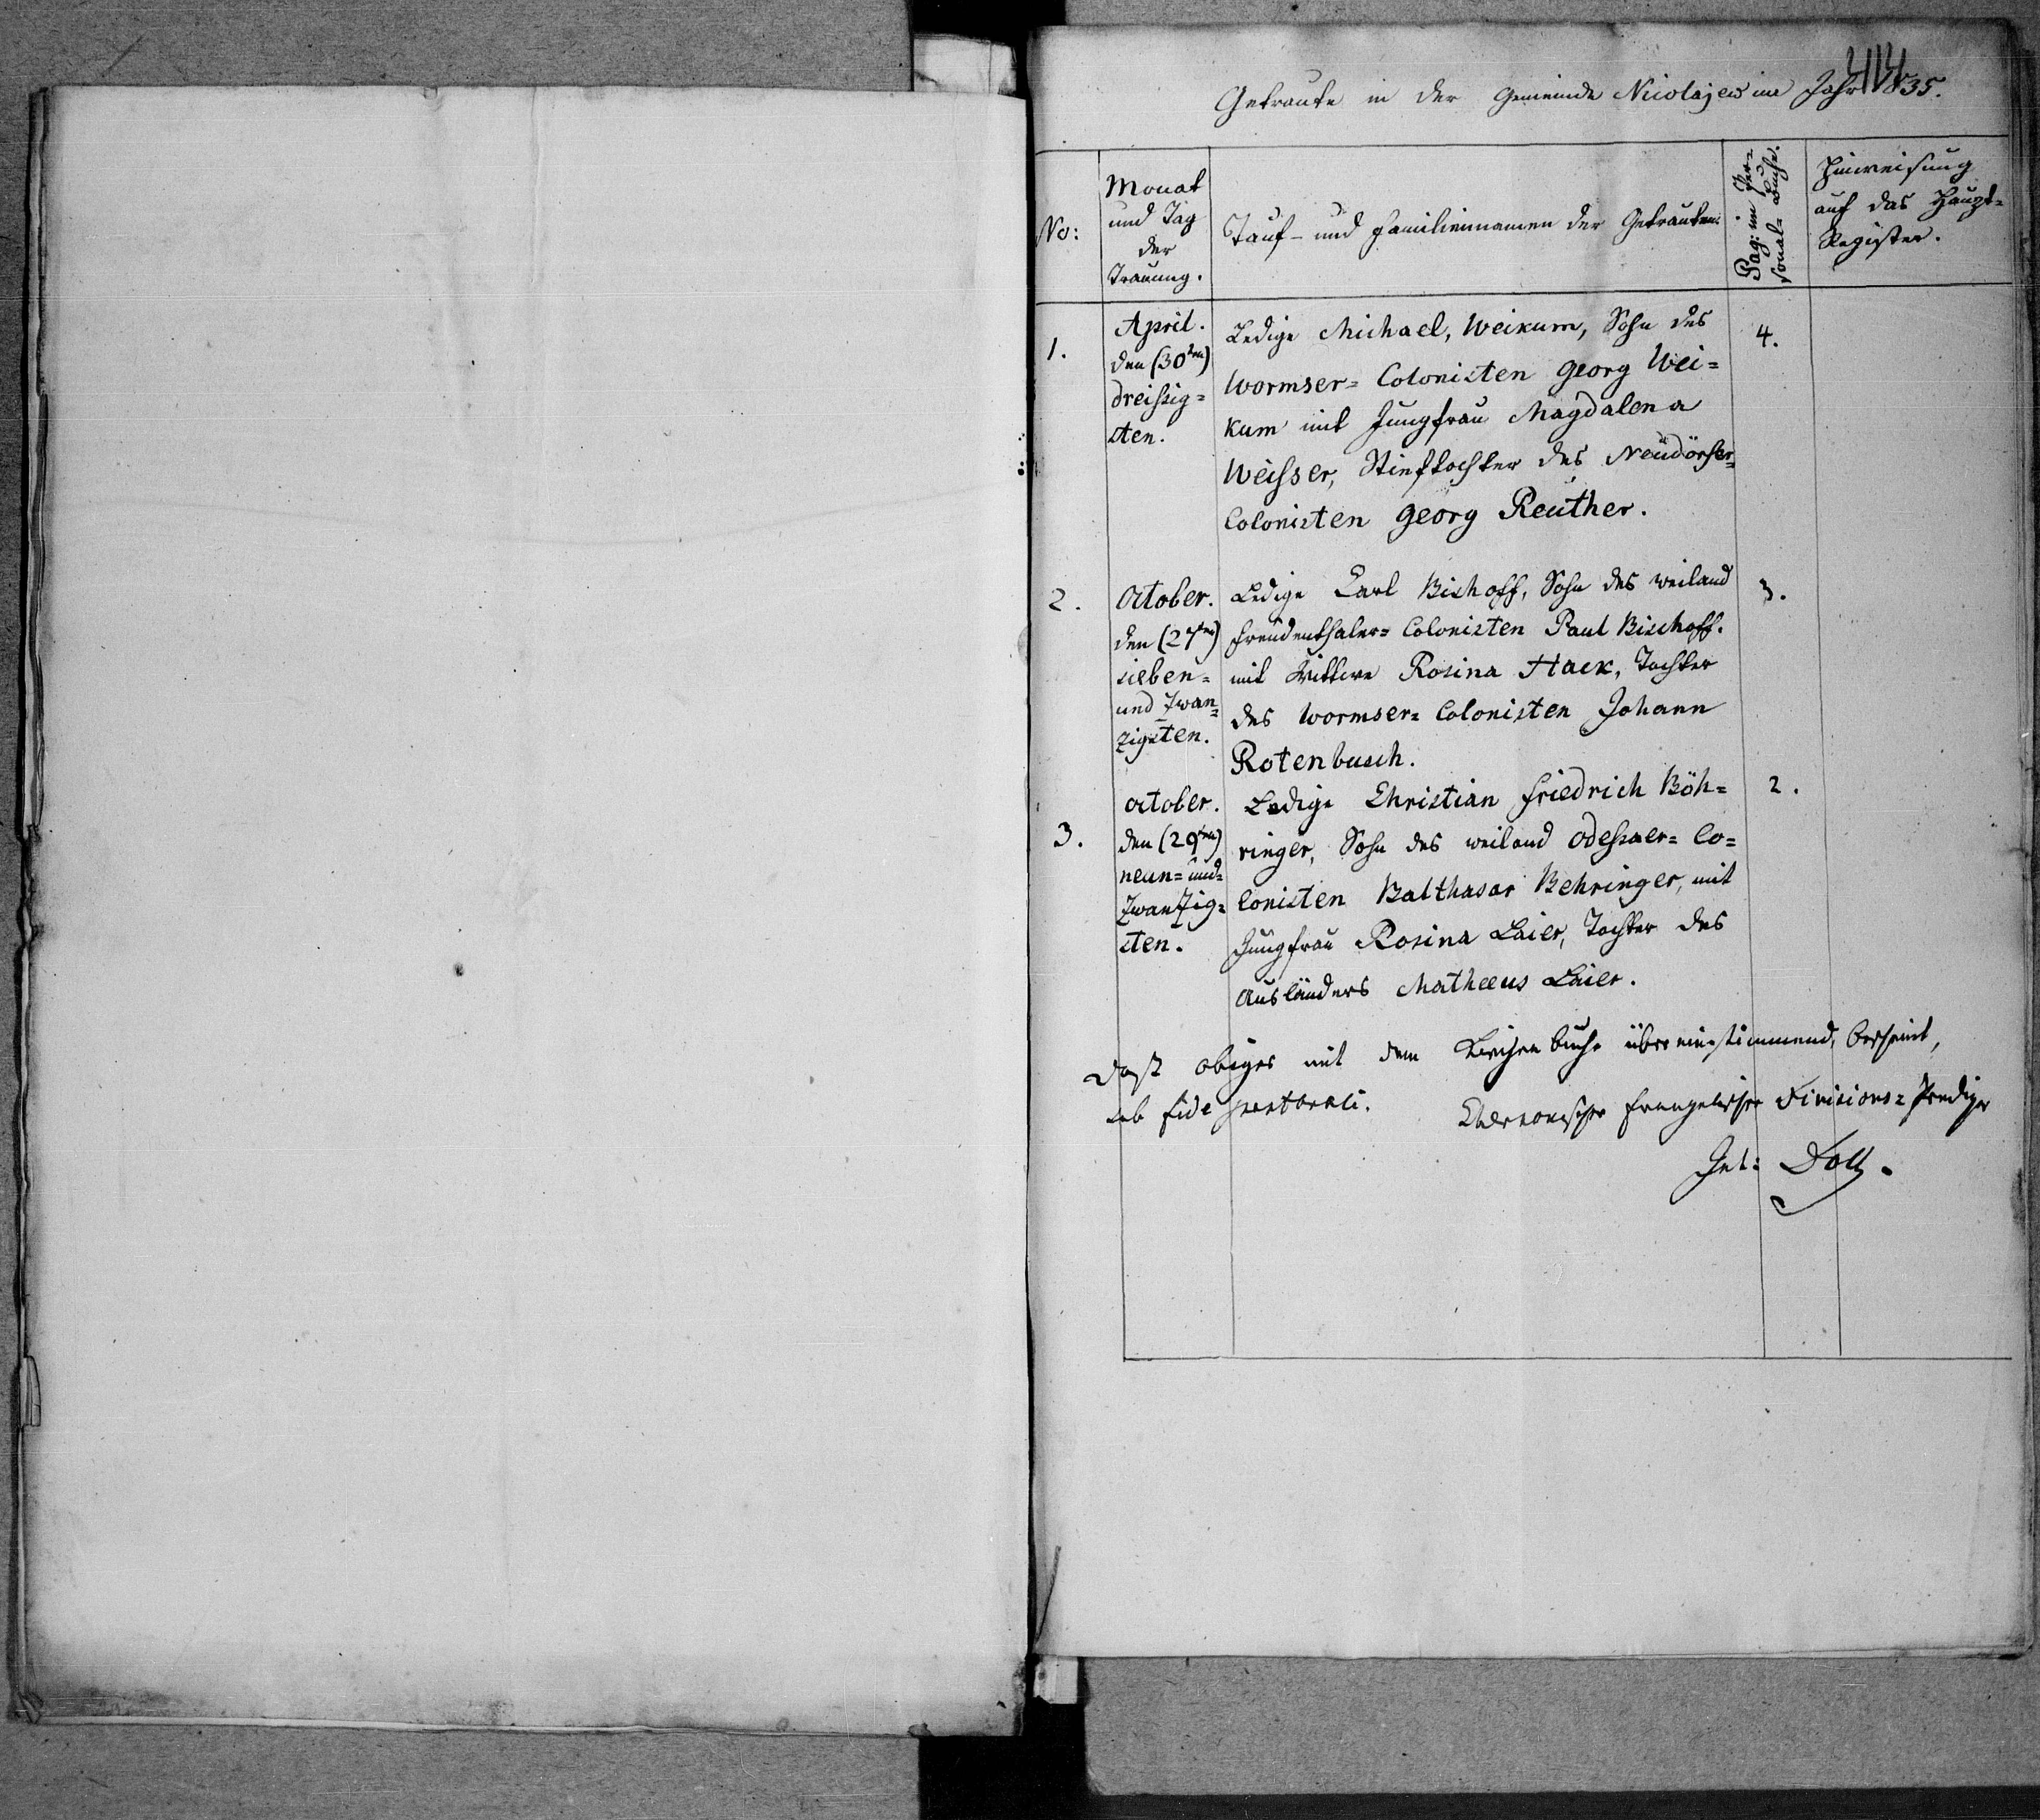 414
Getraute in der Gemeinde Nicolajew im Jahr 1835.
No:
Monat
und Tag
der
Trauung.
Tauf- und Familiennamen der Getrauten.
Pag: im Per=
sonal= Buche.
Hinweisung
auf das Haupt=
Register.
1.
April.
den (30ten)
dreißig=
sten.
Ledige Michael, Weikum, Sohn des
Wormser= Colonisten Georg Wei=
kum mit Jungfrau Magdalena
Weisser, Stieftochter des Neudörfer=
Colonisten Georg Reuther.
4.
2.
October.
den (27ten)
sieben=
und zwan=
zigsten.
Ledige Carl Bishoff, Sohn des weiland
Freudenthaler= Colonisten Paul Bischoff.
mit Wittwe Rosina Hack, Tochter
des Wormser= Colonisten Johann
Rotenbusch.
3.
3.
October.
den (29ten)
neun= und=
zwanzig=
sten.
Ledige Christian Friedrich Böh=
ringer, Sohn des weiland Odessaer= Co=
lonisten Balthasar Behringer, mit
Jungfrau Rosina Laier, Tochter des
Ausländers Matheeus Laier.
2.
Daß obiges mit dem Kirchenbuche übereinstimmend, bescheint,
sub fide pastorali. Chersonischer Evangelischer Divisions= Prediger
Doll.